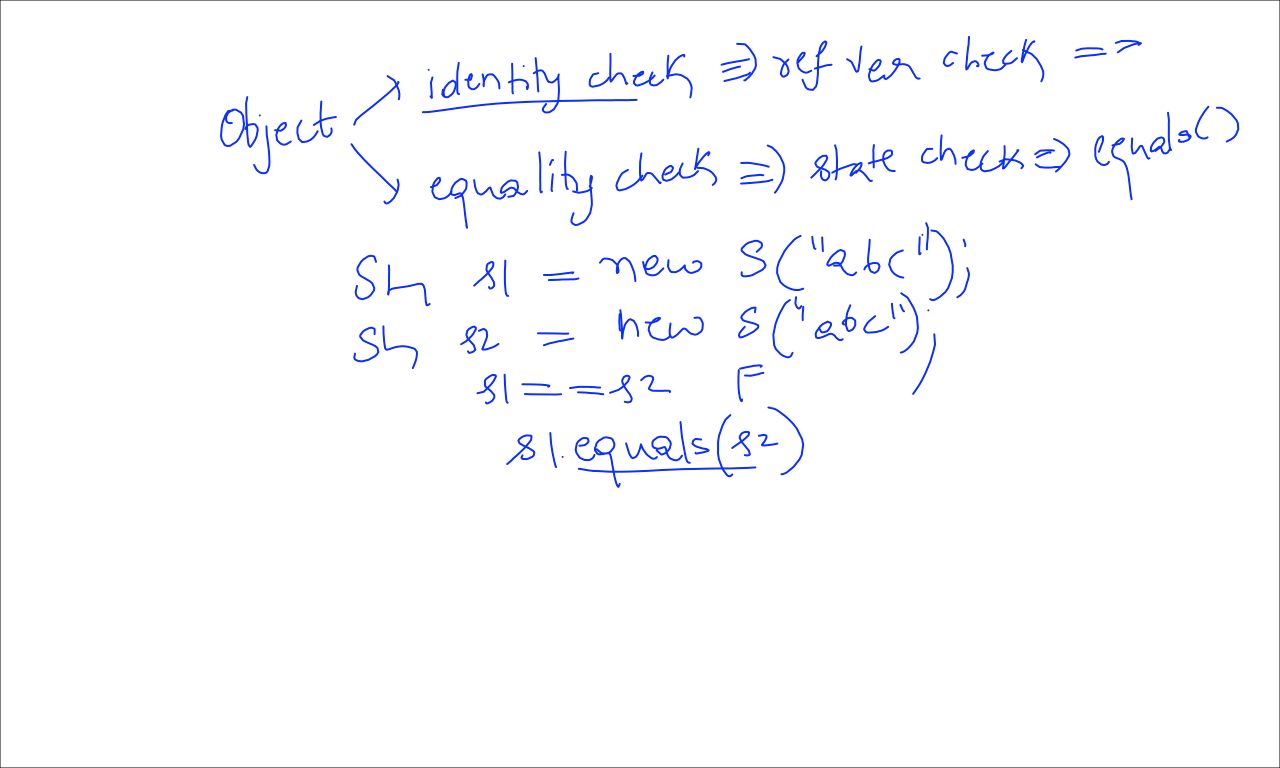 Object
identity check => ref var check ==>
equality check => state check => equals()
Str s1 = new S("abc");
Str s2 = new S("abc");
s1 == s2 F
s1.equals(s2)